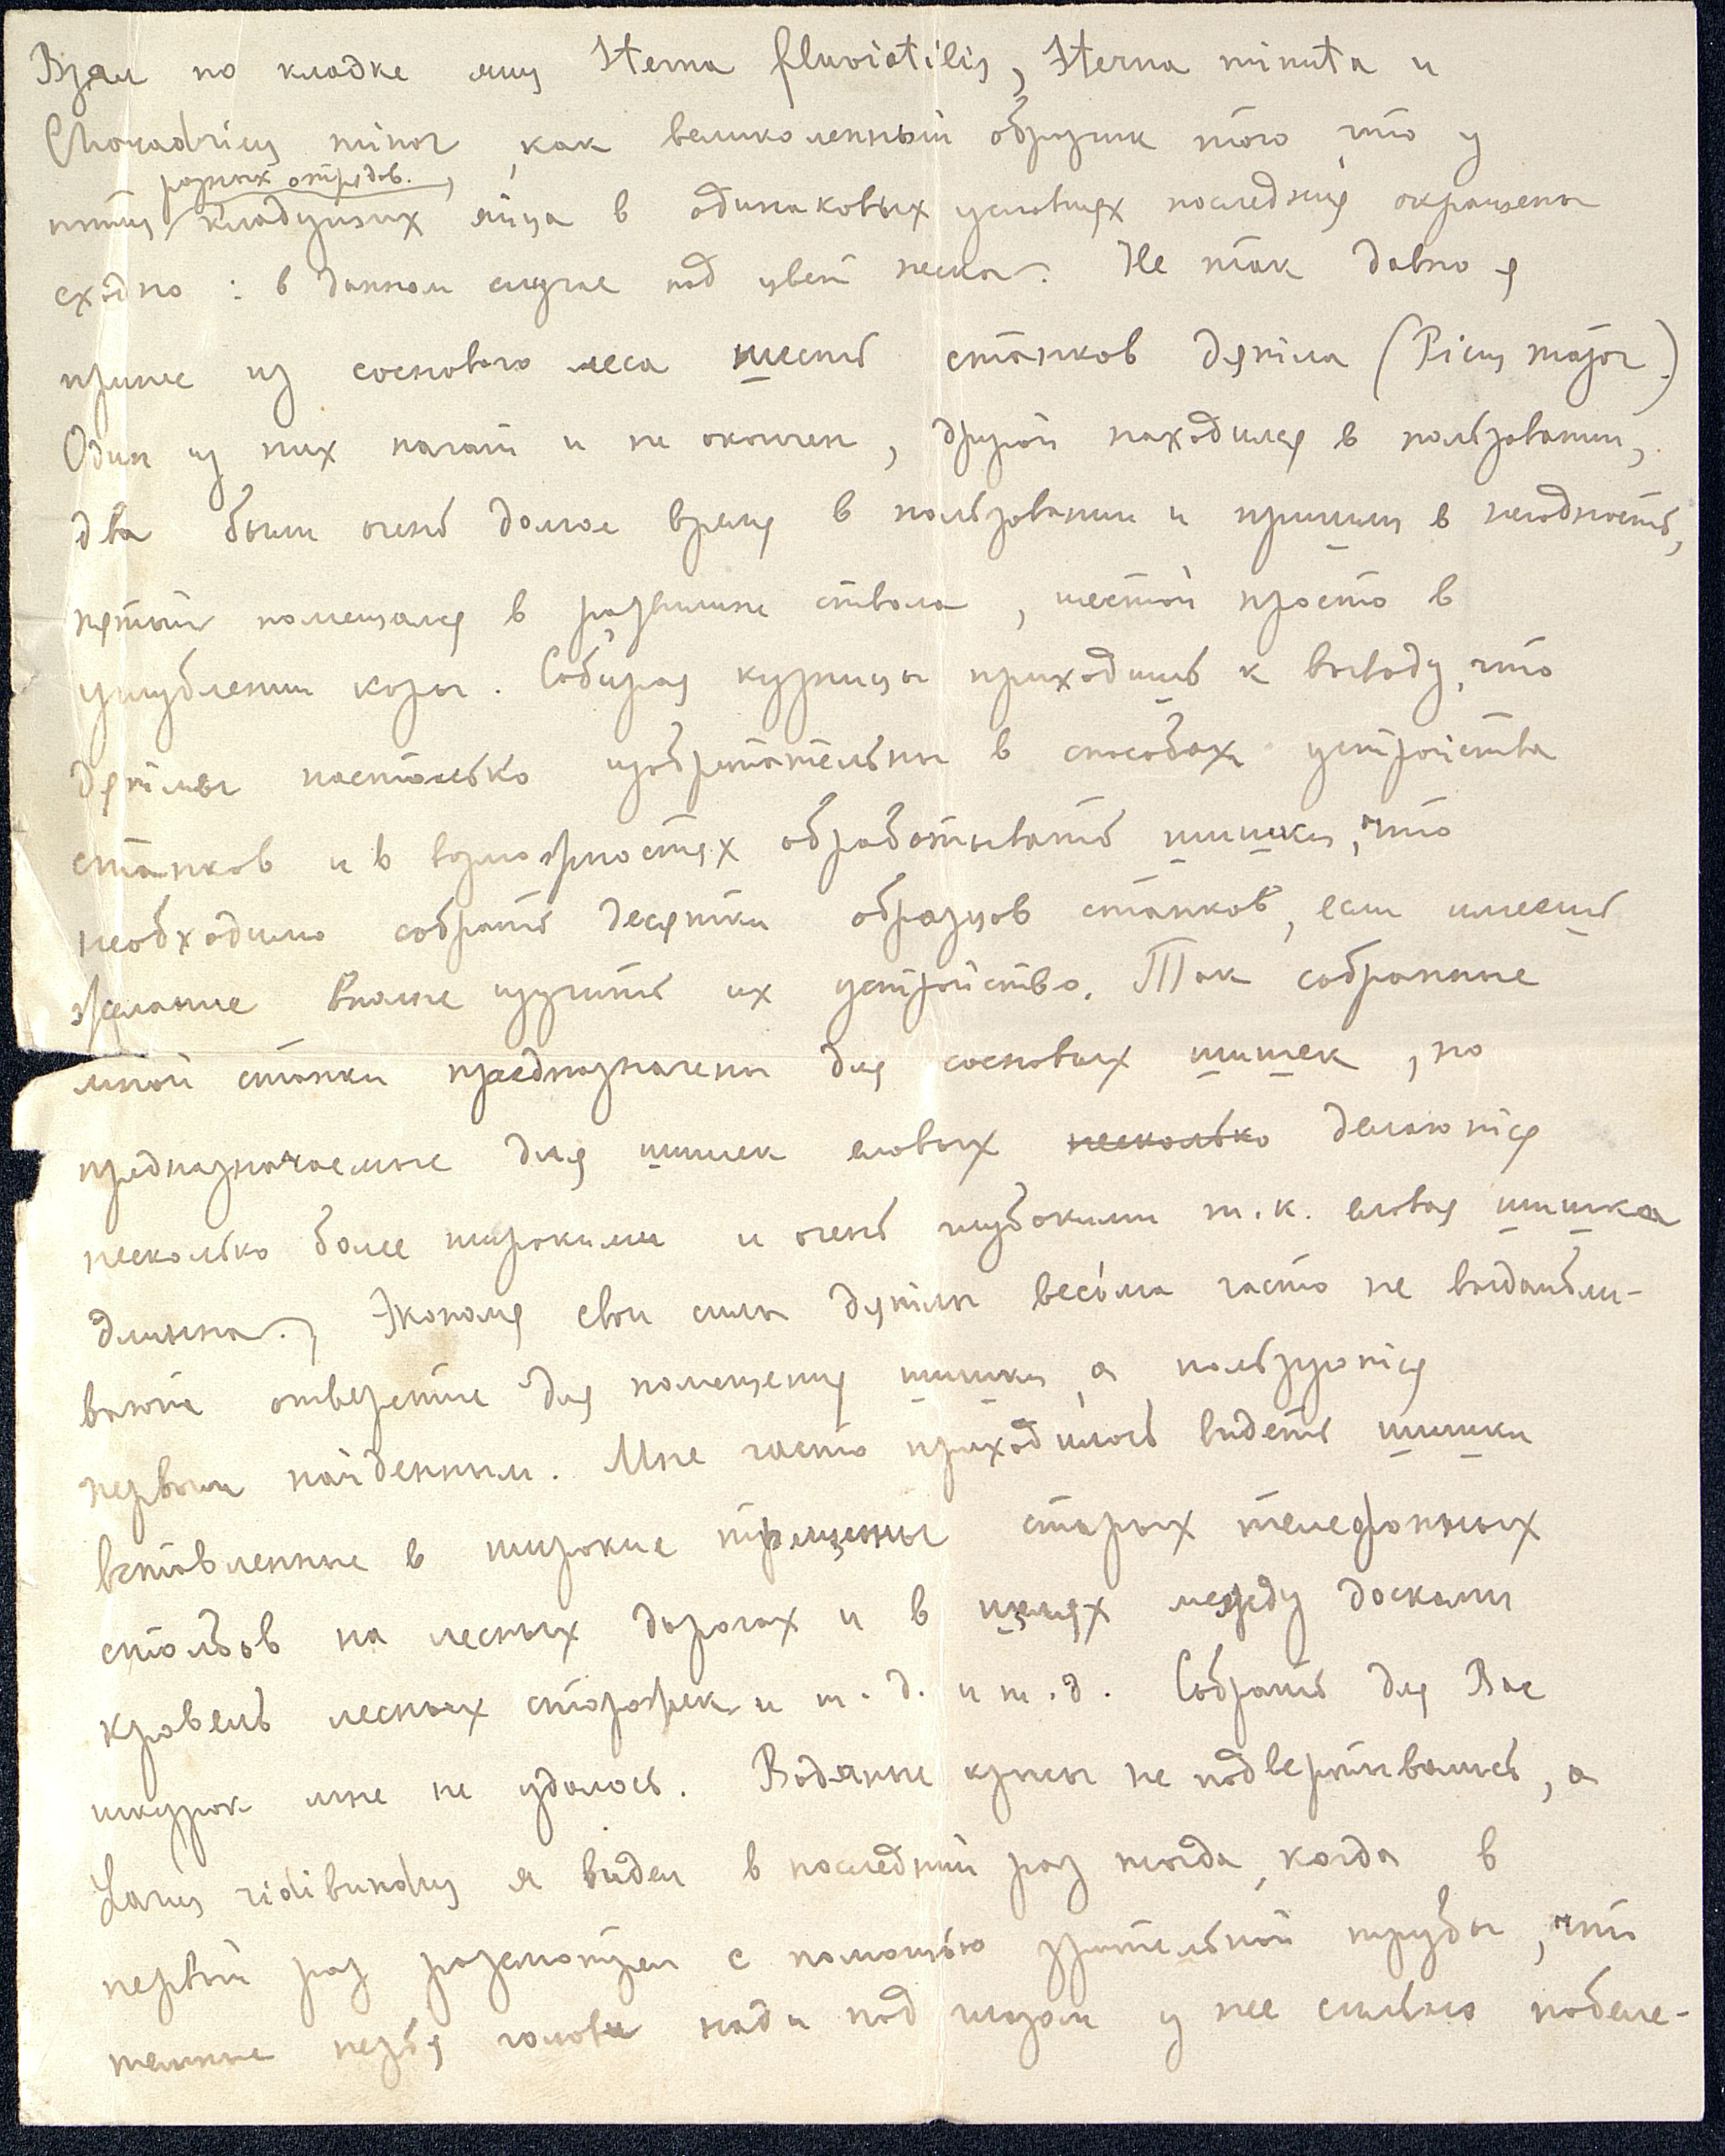 Взял по кладке яиц Sterna fluviatilis, Sterna minuta и
Charadrius minor, как великолепный образчик того, что у
разных отрядов,
птиц кладущих яйца в одинаковых условиях последние окрашены
сходно: в данном случае под цвет песка. Не так давно я
принес из соснового леса шесть станков дятла (Picus major.)
Один из них начат и не окончен, другой находился в пользовании,
два были очень долгое время в пользовании и пришли в негодность,
пятый помещался в развилине ствола, шестой просто в
углублении коры. Собирая кузницы приходишь к выводу, что
дятлы настолько изобретательны в способах устройства
станков и в возможностях обрабатывать шишки, что
необходимо собрать десятки образцов станков, если имеешь
желание вполне изучить их устройство. Так собранные
мной станки предназначены для сосновых шишек, но
предназначаемые для шишек еловых несколько делаются
несколько более широкими и очень глубокими т.к. еловая шишка
длинна. Экономя свои силы дятлы весьма часто не выдалбли-
вают отверстие для помещения шишки, а пользуются
первым найденным. Мне часто приходилось видеть шишки
вставленные в широкие трещины старых телефонных
столбов на лесных дорогах и в щелях между досками
кровель лесных сторожек и т.д. и т.д. Собрать для Вас
шкурок мне не удалось. Водяные крысы не подвертывались, а
Larus ridibundus я видел в последний раз тогда, когда в
первый раз разсмотрел с помощью зрительной трубы, что
темные перья головы над и под глазом у нее сильно побеле-